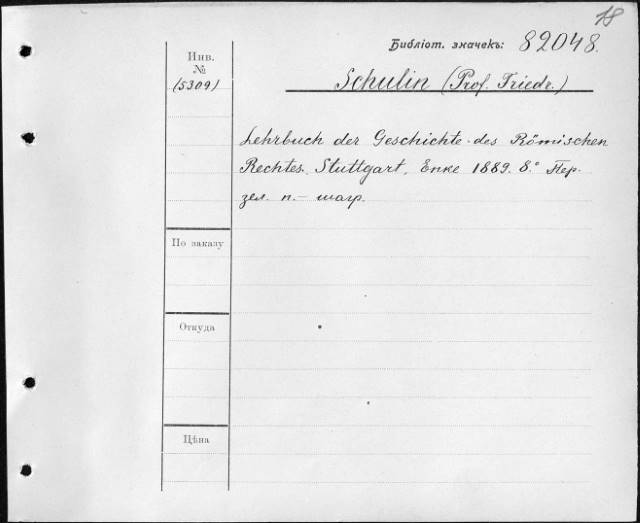 18
Библіот. значекъ: 82048.
Инв.
№
(5309)
Schulin (Prof. Friedr.)
Lehrbuch der Geschichte des Römischen
Rechtes. Stuttgart, Enke 1889. 8.° Пер.
зел. п. — шагр.
По заказу
Откуда
Цѣна